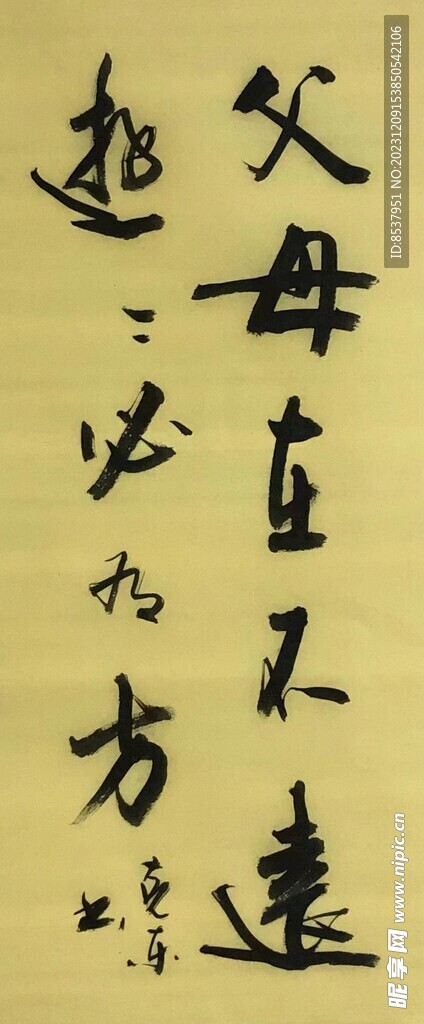 父母在不遠
遊〻必有方
堯东
书
ID:8537951 NO:20231209153850542106
昵享网 www.nipic.cn